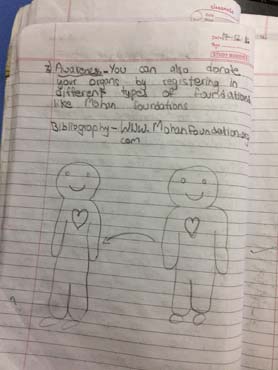 3) Awareness - You can also donate
your organs by registering in
different types of foundations
like Mohan foundations
Bibliography - WWW. MohanFoundation.org
com